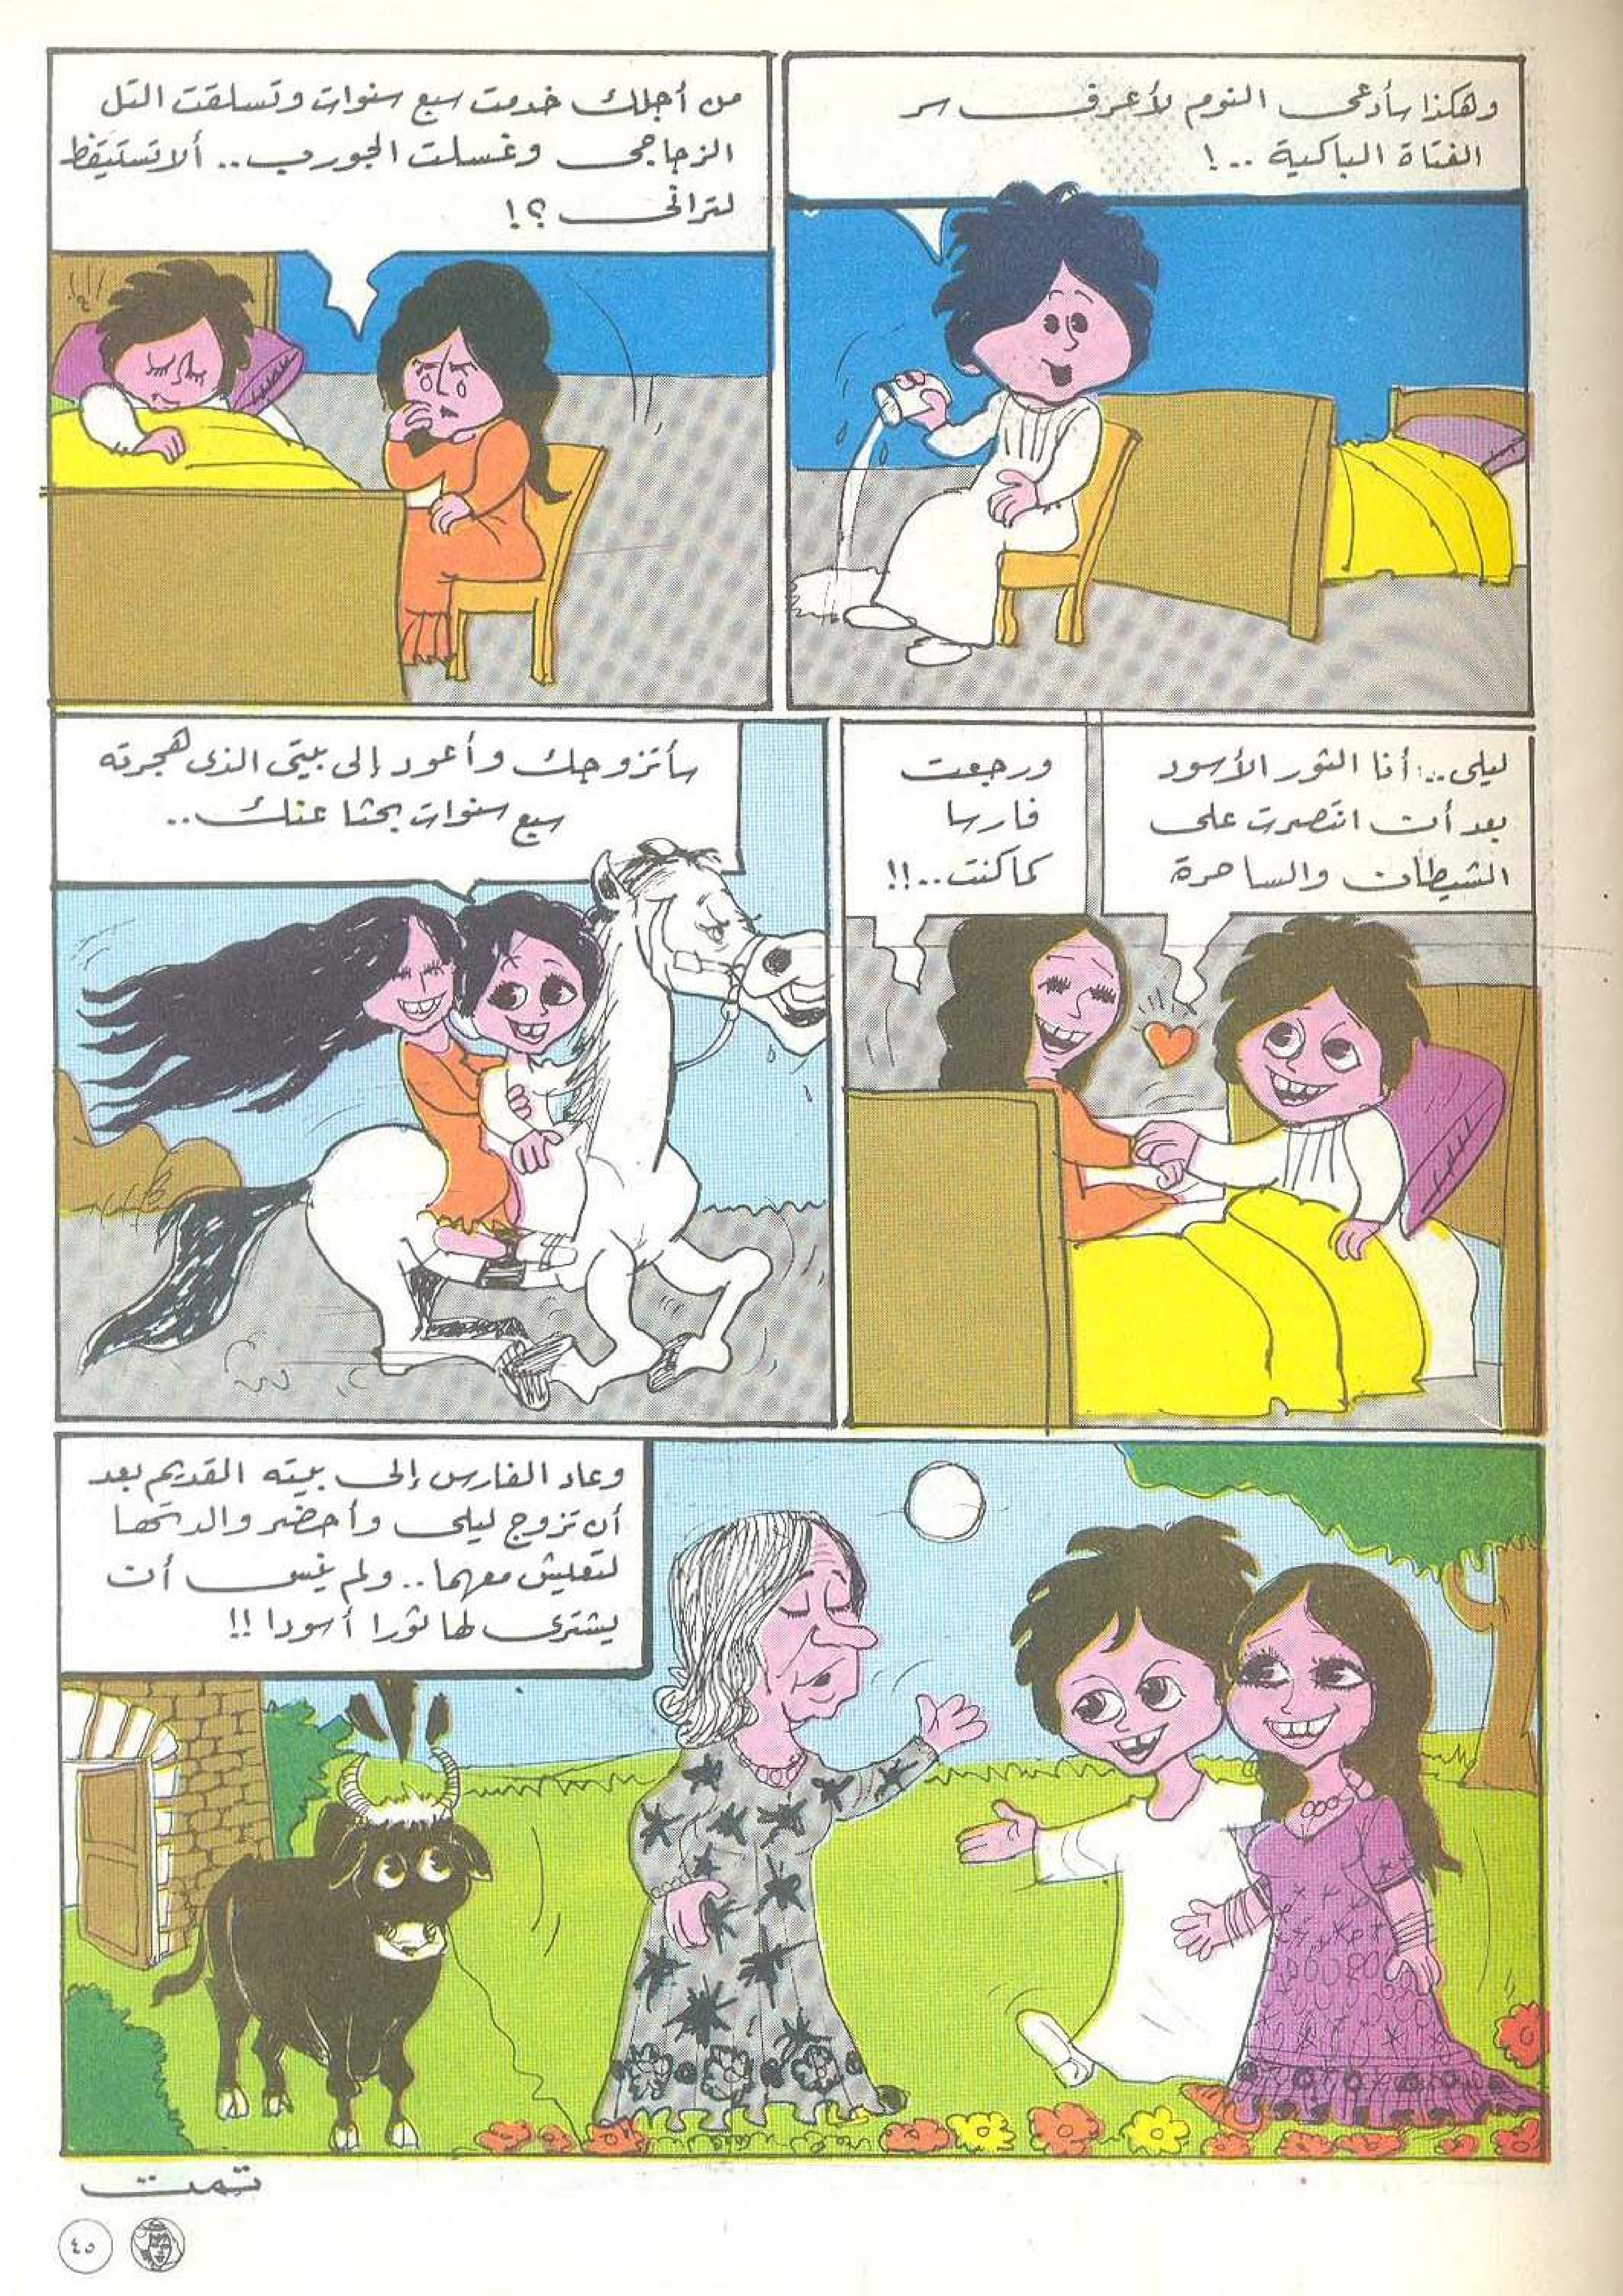 وهكذا سأدعى النوم لأعرف سر
الفتاة الباكية ..!
من أجلك خدمت سبع سنوات وتسلقت التل
الزجاجى وغسلت الجورب .. ألا تستيقظ
لترانى ؟!
ليلى .. أنا الثور الأسود
بعد أن انتصرت على
الشيطان والساحرة
ورجعت
فارسا
كما كنت ..!!
سأتزوجك وأعود إلى بيتى الذى هجرته
سبع سنوات بحثا عنك ..
وعاد الفارس إلى بيته القديم بعد
أن تزوج ليلى وأحضر والدتها
لتعيش معهما .. ولم ينس أن
يشترى لها ثورا أسودا !!
تمت
٤٥